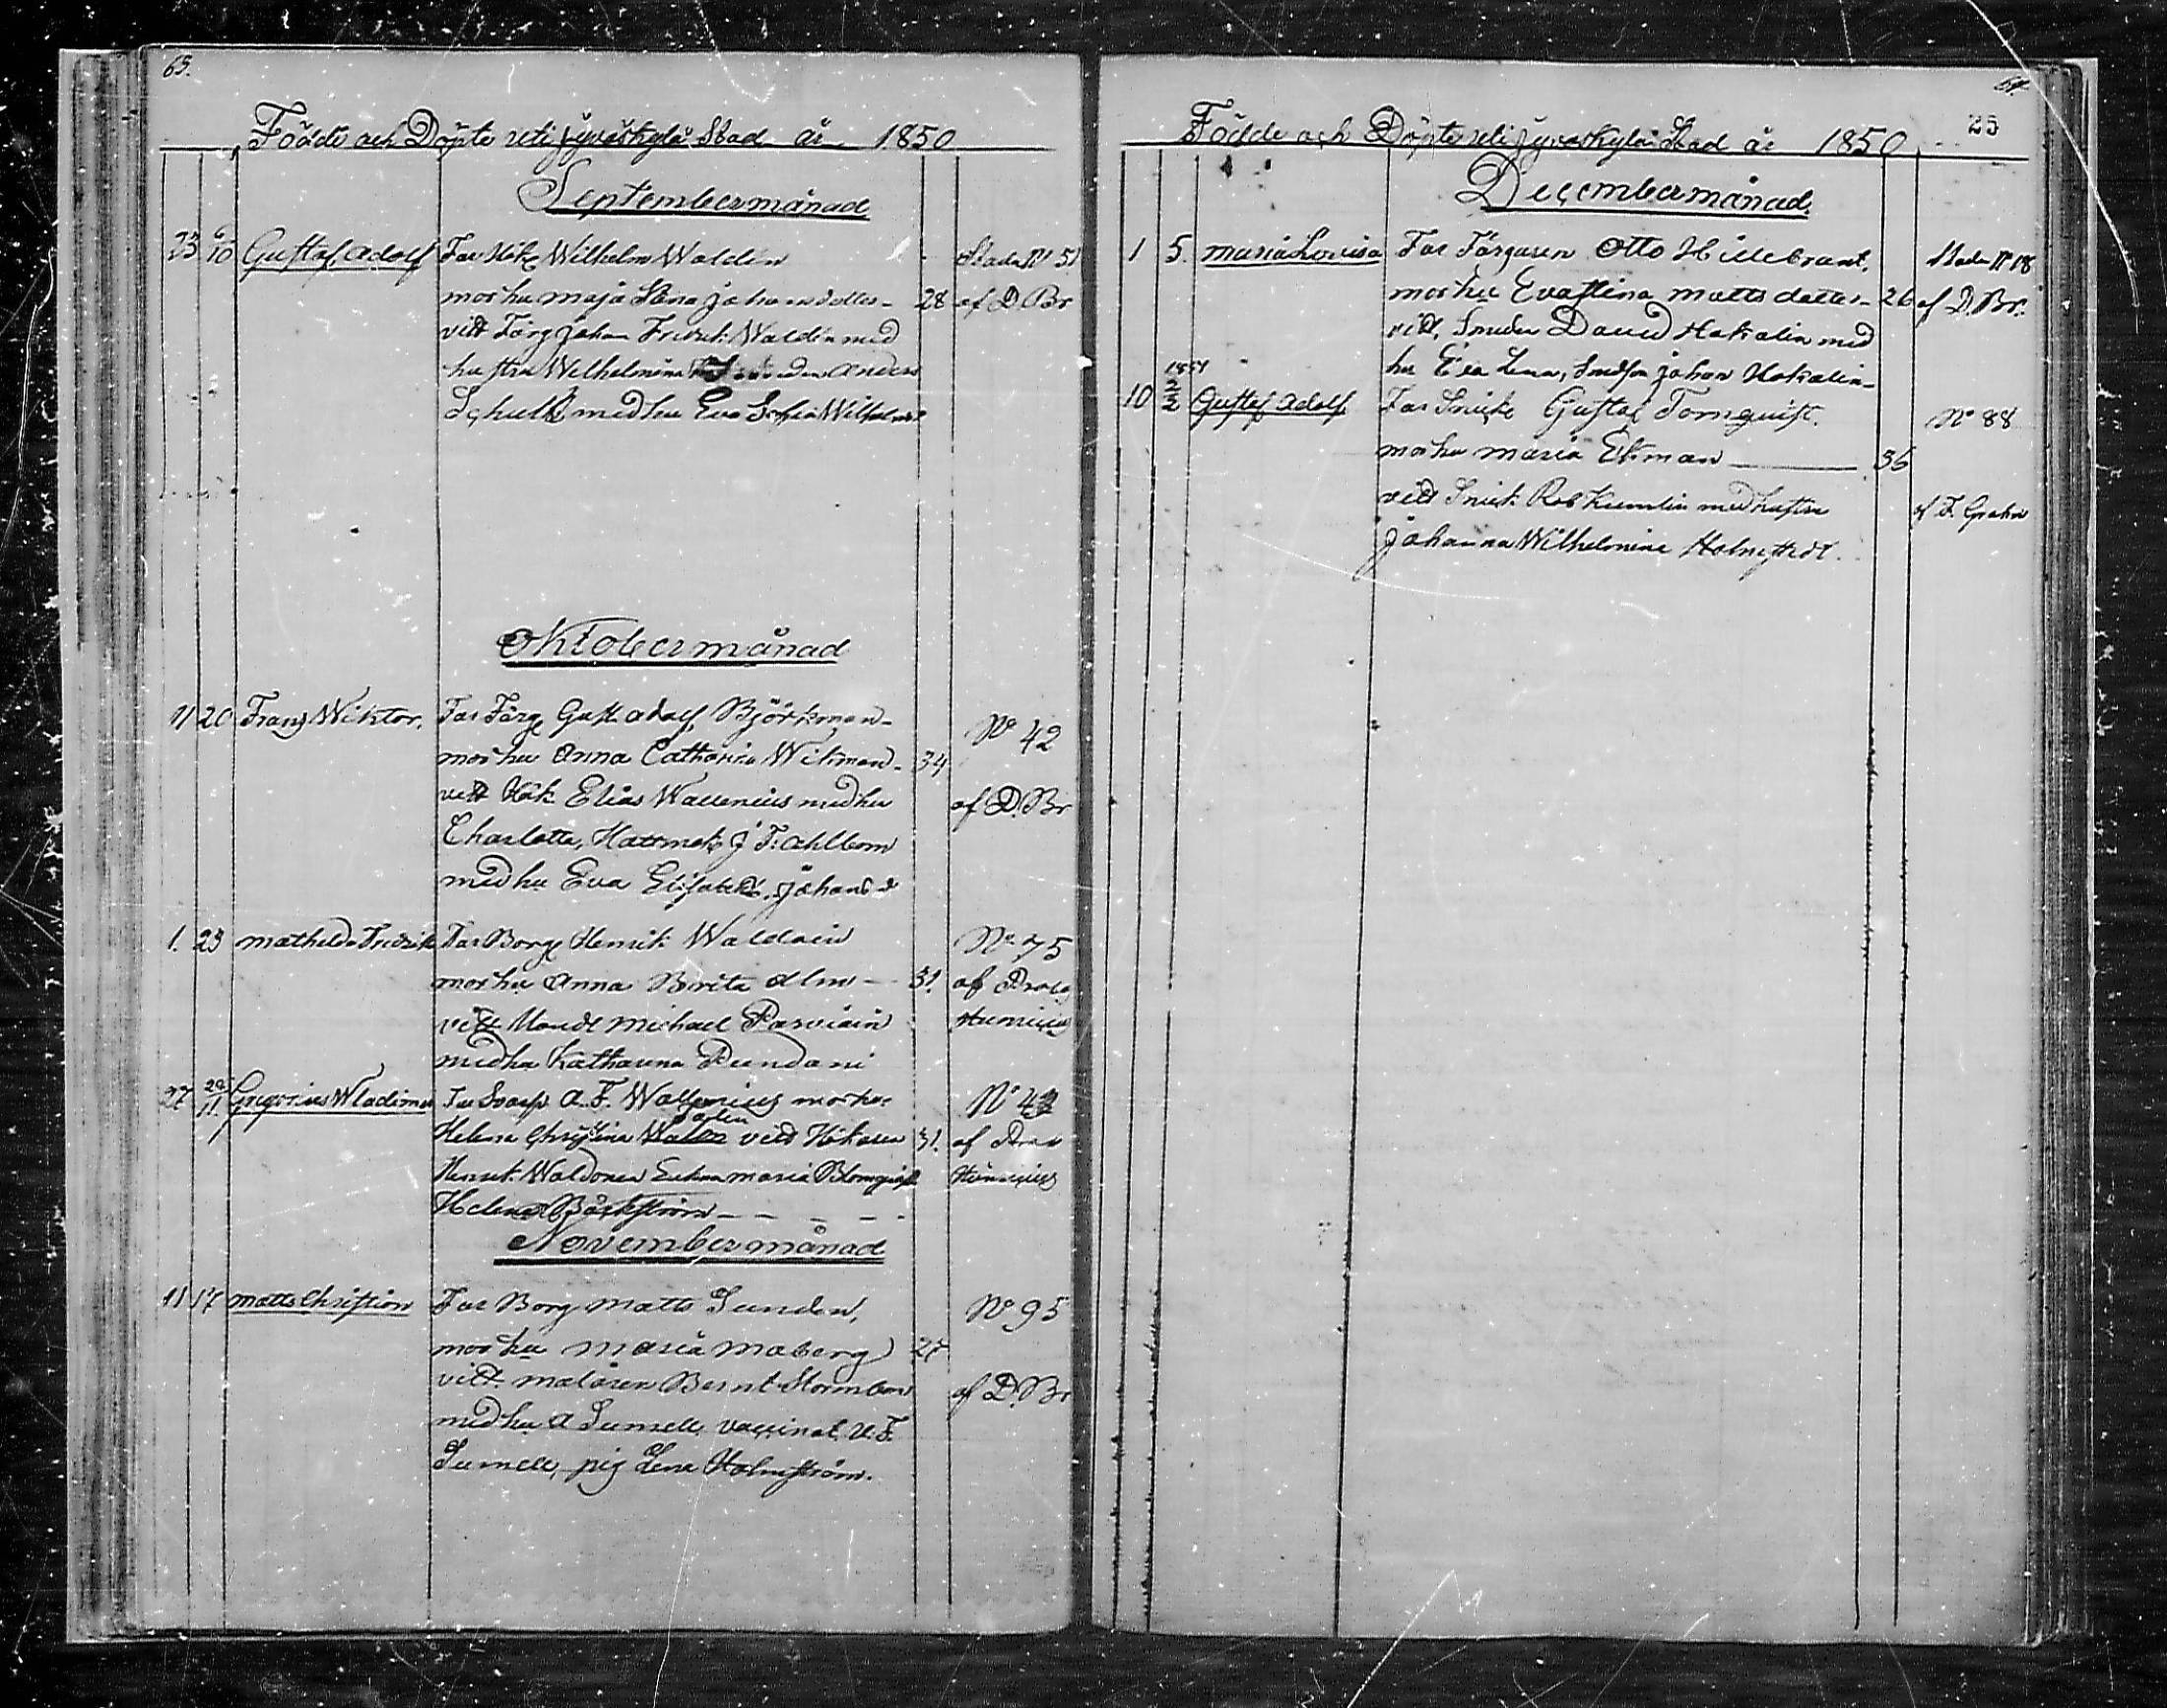 63.
Födde och Döpte uti Jyväskylä Stad år 1850
Septembermånad
23 6/10 Gustaf Adolf Far Hök Wilhelm Waldin Stads No 51
mor hu Maja Stina Johansdotter- 28 af D Br
vitt Färg Johan Fredrik Waldin med
hustru Wilhelmina Anders
Schultz med hu Eva Sofia Wilhelms
Oktobermånad
11 20 Frans Wiktor. Far Färg Gust Adolf Björkman- No 42
mor hu Anna Catharina Wikman- 34
vitt Hök Elias Wallenius med hu af D. Br
Charlotta, Hattmak J F. Ahlbom
med hu Eva Elisabeth Johansd
1. 23 Mathilda Fredrika Far Borg Henrik Waldain No 75
mor hu Anna Brita Alm - 31. af
vitt Michael Parviain
med hu Katharina
27 29/11 Gregorius Wladimir Far A. F. Wallenius mor hu No 43
Helena Christina vitt Hökaren 31. af
Henrik Waldonen Enkan Maria Blomqvist
Helena Bäckström - - - - -
Novembermånad
11 17 Matts Christian Far Borg Matts Sunden, No 95
mor hu Maria Moberg 27
vitt. målaren Bernt Stormbom af D. Br
med hu A Sumell, vaccinat. U. F.
Sumell, pig Lena Holmström.
64.
25
Födde och Döpte uti Jyväskylä Stad år 1850
Decembermånad.
1 5. Maria Lovisa Far Färgaren Otto Hillebrant. Stads No 18
mor hu Eva Stina Mattsdotter- 26 af D. Br.
vitt. Smeden David Hakalin med
hu Eva Lena, Smedson Johan Hakalin-
1851
10 2/2 Gustaf Adolf Far Snick Gustaf Tornqvist. No 88
mor hu Maria Ekman 36
vitt Snick. Rob Kumlin med hustru af F. Grahn
Johanna Wilhelmina Holmstedt.